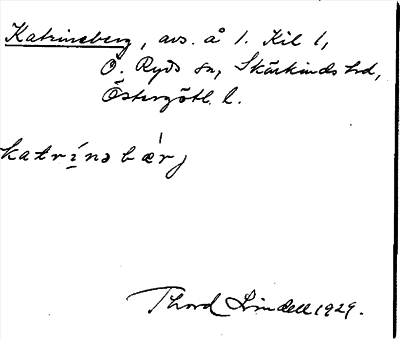 Katrineberg, avs. å 1. Kil 1,
Ö. Ryds sn, Skärkinds hd,
Östergötl. l.
katrinə bær,j
Thord Lindell 1929.